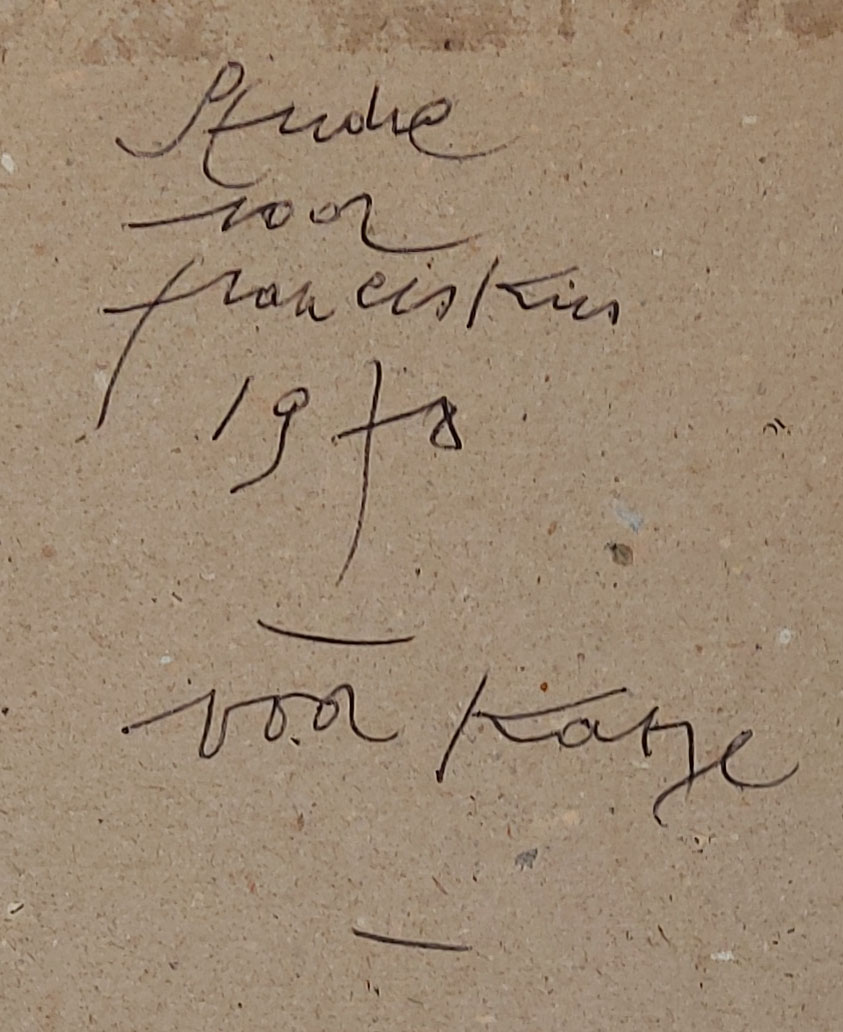 Studie
voor
franciskus
1978
voor Katje